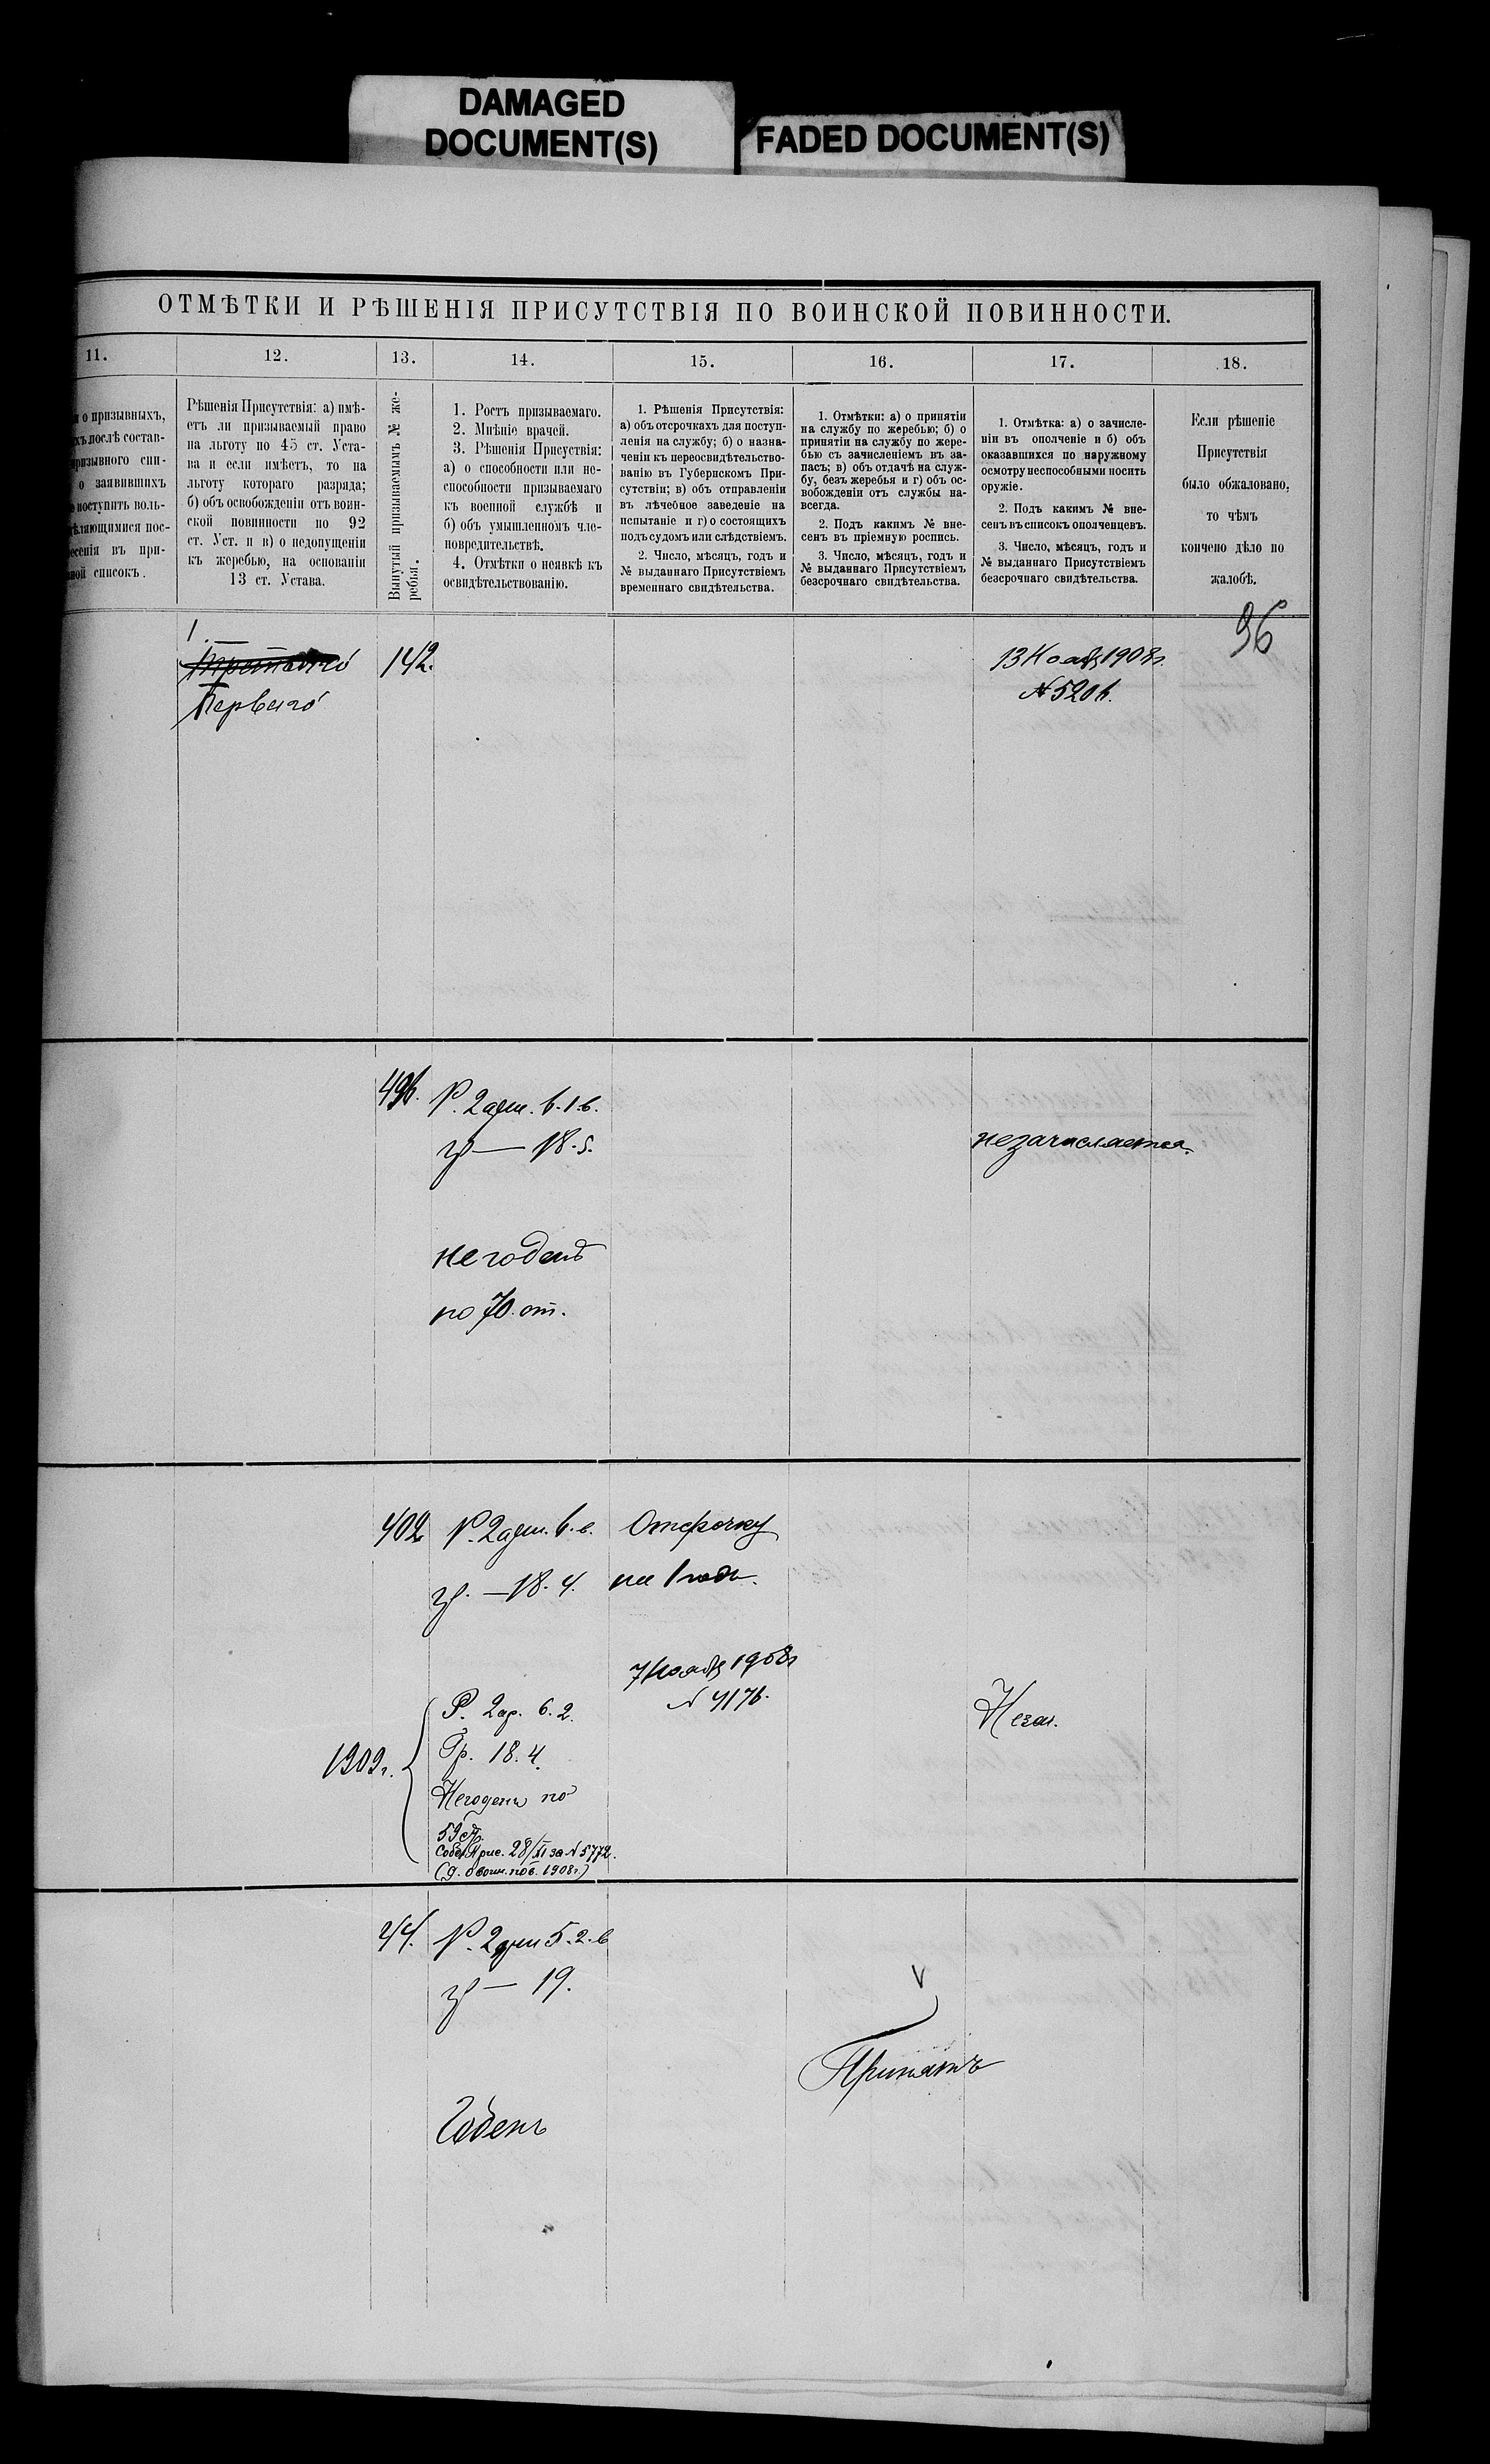 DAMAGED
DOCUMENT(S)
FADED DOCUMENT(S)
ОТМѢТКИ И РѢШЕНІЯ ПРИСУТСТВІЯ ПО ВОИНСКОЙ ПОВИННОСТИ.
11.
12.
13.
14.
15.
16.
17.
18.
о призывныхъ,
послѣ состав-
призывного спи-
о заявившихъ
поступить воль-
опредѣляющимися пос-
внесенія въ при-
списокъ.
Рѣшенія Присутствія: а) имѣ-
етъ ли призываемый право
на льготу по 45 ст. Уста-
ва и если имѣетъ, то на
льготу котораго разряда;
б) объ освобожденіи отъ воин-
ской повинности по 92
ст. Уст. и в) о недопущеніи
къ жеребью, на основаніи
13 ст. Устава.
Вынутый призываемымъ № же-
ребья.
1. Ростъ призываемаго.
2. Мнѣніе врачей.
3. Рѣшенія Присуствія:
а) о способности или не-
способности призываемаго
къ военной службѣ и
б) объ умышленномъ чле-
новредительствѣ.
4. Отмѣтки о неявкѣ къ
освидѣтельствованію.
1. Рѣшенія Присутствія:
а) объ отсрочкахъ для поступ-
ленія на службу; б) о назна-
ченіи къ переосвидѣтельство-
ванію въ Губернскомъ При-
сутствіи; в) объ отправленіи
въ лѣчебное заведеніе на
испытаніе и г) о состоящихъ
подъ судомъ или слѣдствіемъ.
2. Число, мѣсяцъ, годъ и
№ выданнаго Присутствіемъ
временнаго свидѣтельства.
1. Отмѣтки: а) о принятіи
на службу по жеребью; б) о
принятіи на службу по жере-
бью съ зачисленіемъ въ за-
пасъ; в) объ отдачѣ на служ-
бу, безъ жеребья и г) объ ос-
вобожденіи отъ службы на-
всегда.
2. Подъ какимъ № вне-
сенъ въ пріемную роспись.
3. Число, мѣсяцъ, годъ и
№ выданнаго Присутствіемъ
безсрочнаго свидѣтельства.
1. Отмѣтка: а) о зачисле-
ніи въ ополченіе и б) объ
оказавшихся по наружному
осмотру неспособными носить
оружіе.
2. Подъ какимъ № вне-
сенъ въ списокъ ополченцевъ.
3. Число, мѣсяцъ, годъ и
№ выданнаго Присутствіемъ
безсрочнаго свидѣтельства.
Если рѣшеніе
Присутствія
было обжаловано,
то чѣмъ
кончено дѣло по
жалобѣ.
96
1.
Третьяго
Перваго
142.
13 Нояб 1908г.
№ 5206.
496.
Р. 2 арш. 6.1.в.
гр — 18.5.
не годенъ
по 70. ст.
незачисляется.
402
Р. 2 арш. 6. в.
гр. — 18. 4.
Отсрочку
на 1 годъ.
7 Нояб 1908г
№ 4176.
1909г.
Р. 2 ар. 6. 2.
Гр. 18. 4.
Негоденъ по
59 ст.
28/XI за № 5772.
(д. о воин. пов. 1908г.)
Незач.
44.
Р. 2 арш 5. 2. в
гр — 19.
Годенъ
V
Принятъ